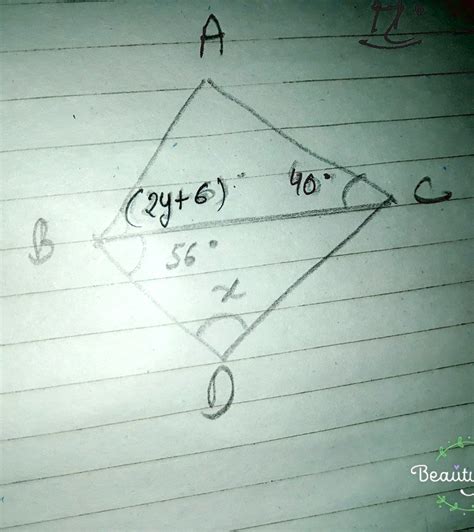 A
(2y+6)°
40°
C
B
56°
x
D
Beautu